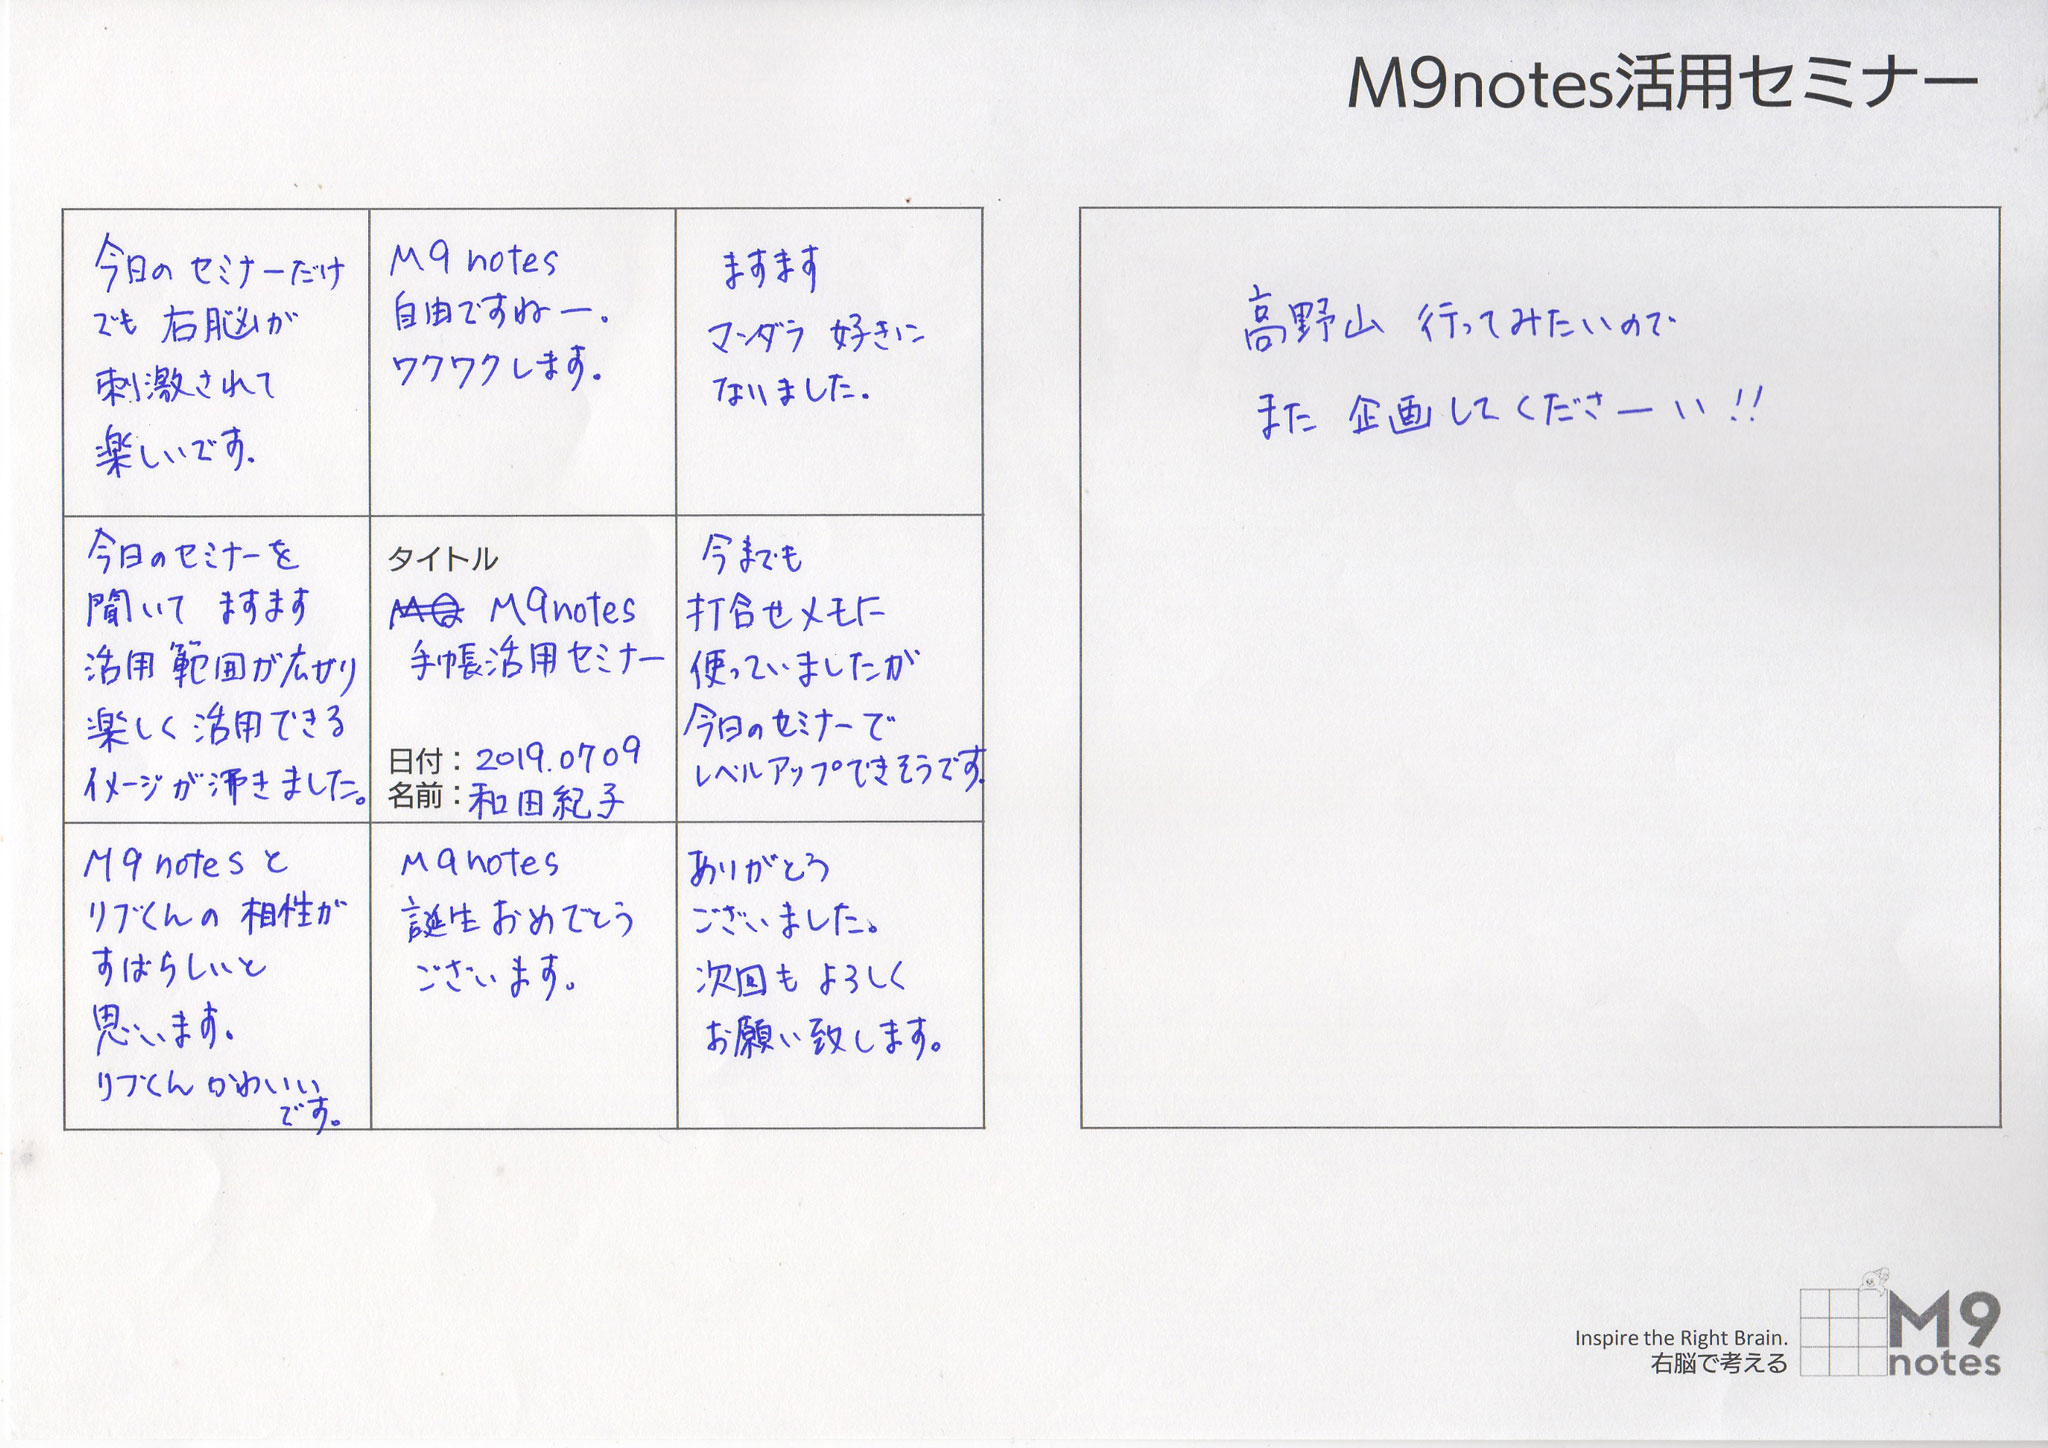 M9notes活用セミナー
今日のセミナーだけ
でも右脳が
刺激されて
楽しいです.
M9 notes
自由ですねー.
ワクワクします.
ますます
マンダラ 好きに
なりました.
今日のセミナーを
聞いて ますます
活用範囲が広がり
楽しく活用できる
イメージが沸きました。
タイトル
M9notes
手帳活用セミナー
日付：2019.0709
名前：和田紀子
今までも
打合せメモに
使っていましたが
今日のセミナーで
レベルアップできそうです.
M9notesと
リブくんの相性が
すばらしいと
思います。
リブくんかわいい
です。
M9notes
誕生おめでとう
ございます。
ありがとう
ございました。
次回もよろしく
お願い致します。
高野山 行ってみたいので
また 企画してくださーい!!
Inspire the Right Brain.
右脳で考える
M9
notes